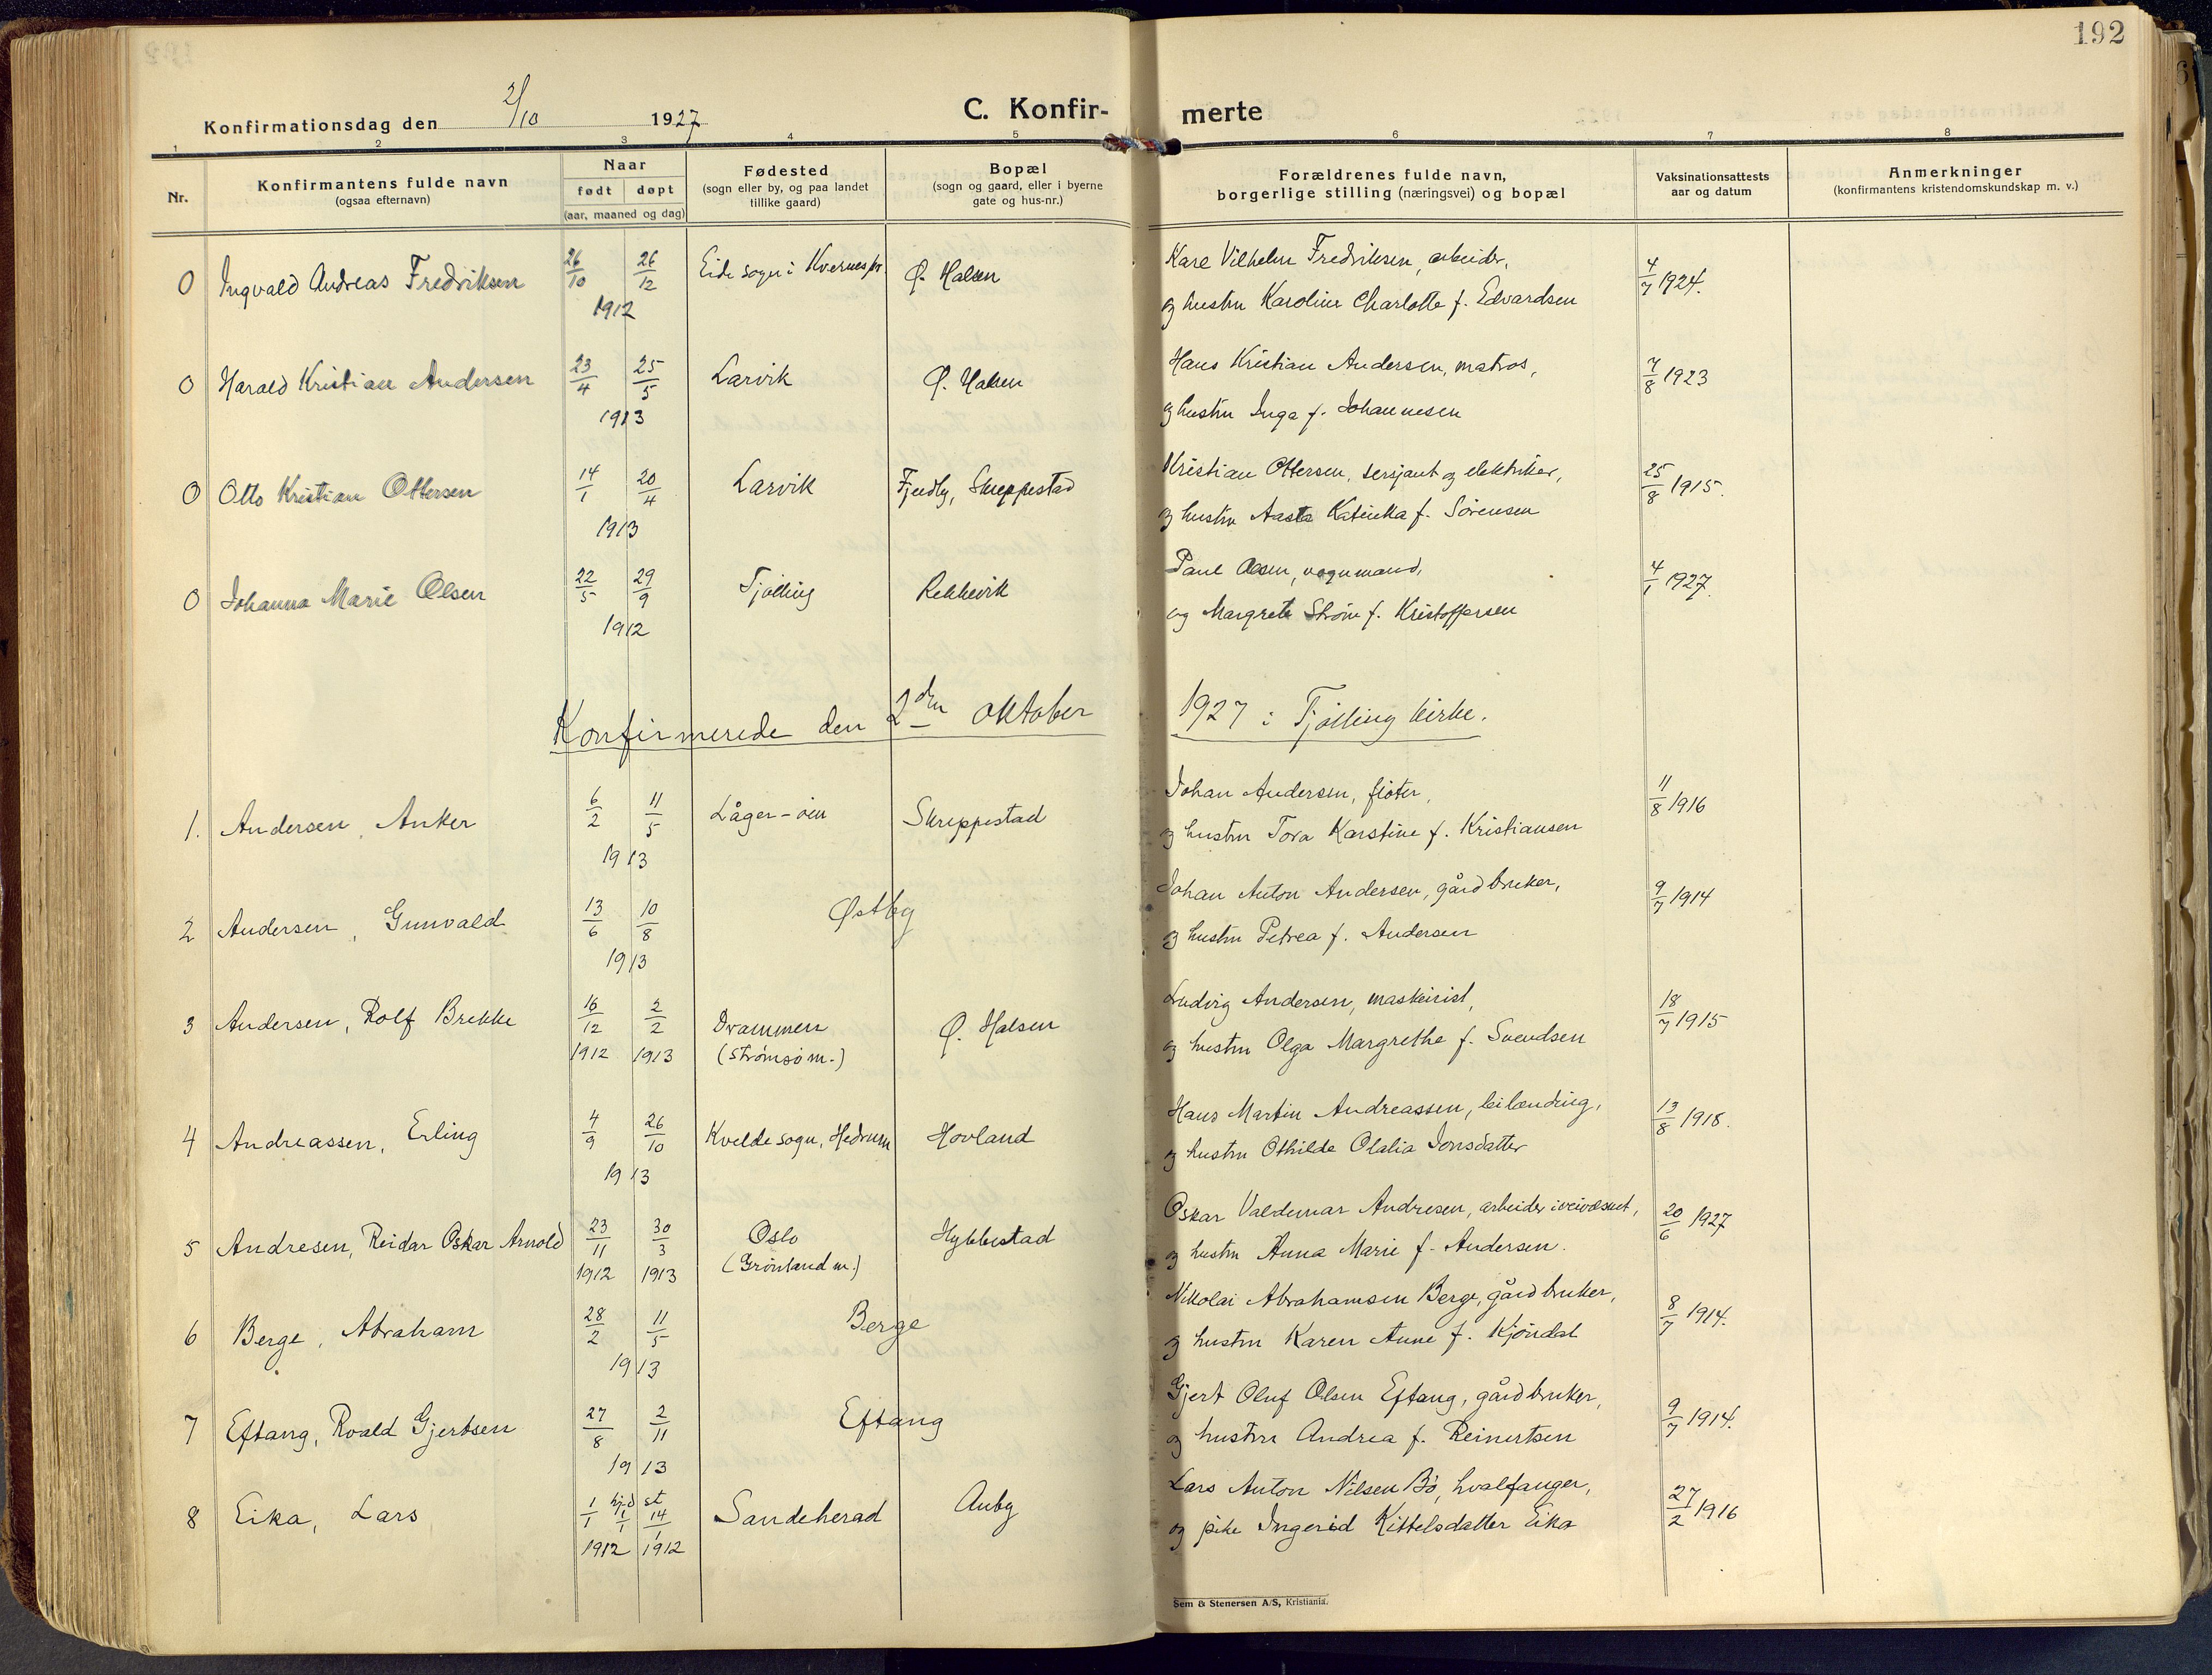 192
Konfirmationsdag den 2/10 1927
C. Konfir-merte
1 2 3 4 5 6 7 8
Nr.
Konfirmantens fulde navn
(ogsaa efternavn)
Naar
født døpt
(aar, maaned og dag)
Fødested
(sogn eller by, og paa landet
tillike gaard)
Bopæl
(sogn og gaard, eller i byerne
gate og hus-nr.)
Forældrenes fulde navn,
borgerlige stilling (næringsvei) og bopæl
Vaksinationsattests
aar og datum
Anmerkninger
(konfirmantens kristendomskundskap m. v.)
0 Ingvald Andreas Fredriksen 26/10 26/12 Eide sogn i Kvernes pr. Ø. Halsen Karl Vilhelm Fredriksen, arbeider, 4/7 1924.
1912 og hustru Karoline Charlotte f. Edvardsen
0 Harald Kristian Andersen 23/4 25/5 Larvik Ø. Halsen Hans Kristian Andersen, matros, 7/8 1923
1913 og hustru Inga f. Johannesen
0 Otto Kristian Ottersen 14/1 20/4 Larvik Fjeedly, Skreppestad Kristian Ottersen, sersjant og elektriker, 25/8 1915.
1913 og hustru Aasta Katinka f. Sörensen
0 Johanna Marie Olsen 22/5 29/9 Tjölling Rekkevik Paul Olsen, vognmand, 4/1 1927.
1912 og Margrete Ström f. Kristoffersen
Konfirmerede den 2den oktober 1927 i Tjölling kirke.
1. Andersen, Anker 6/2 11/5 Låger-øen Skreppestad Johan Andersen, fløter, 11/8 1916
1913 og hustru Tora Karstine f. Kristiansen
2 Andersen, Gunvald 13/6 10/8 Østby Johan Anton Andersen, gårdbruker, 9/7 1914
1913 og hustru Petrea f. Andersen
3 Andersen, Rolf Brekke 16/12 2/2 Drammen Ø. Halsen Ludvig Andersen, maskinist, 18/7 1915
1912 1913 (Strømsø m.) og hustru Olga Margrethe f. Svendsen
4 Andreassen, Erling 4/9 26/10 Kvelde sogn, Hedrum Hovland Hans Martin Andreassen, leilænding, 13/8 1918.
1913 og hustru Othilde Olalia Jonsdatter
5 Andresen, Reidar Oskar Arnold 23/11 30/3 Oslo Hybbestad Oskar Valdemar Andresen, arbeider i veivæsnet, 20/6 1927
1912 1913 (Grønland m.) og hustru Anna Marie f. Andersen.
6 Berge, Abraham 28/2 11/5 Berge Nikolai Abrahamsen Berge, gårdbruker, 8/7 1914.
1913 og hustru Karen Anne f. Kjöndal
7 Eftang, Roald Gjertsen 27/8 2/11 Eftang Gjert Oluf Olsen Eftang, gårdbruker, 9/7 1914.
1913 og hustru Andrea f. Reinertsen
8 Eika, Lars 1/1 hj.d 1/1 st 14/1 Sandeherad Auby Lars Anton Nilsen Bö, hvalfanger, 27/2 1916
1912 1912 og pike Ingerid Kittelsdatter Eika
Sem & Stenersen A/S, Kristiania.